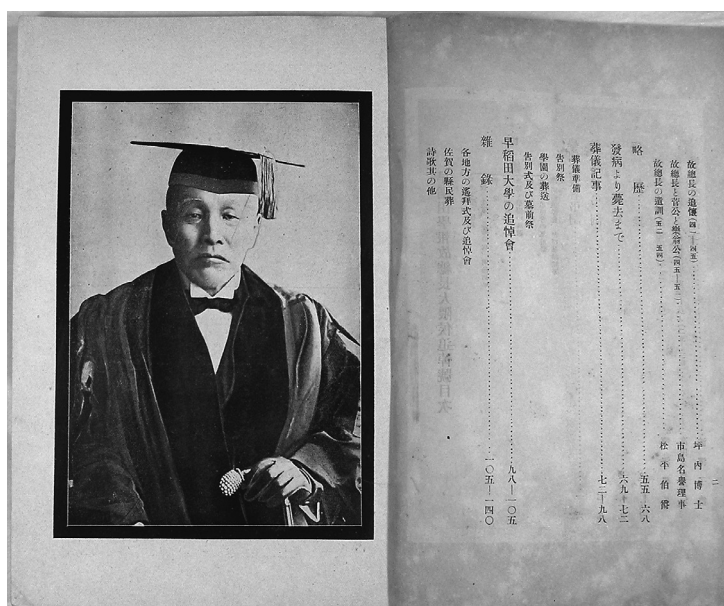 二
故總長の追懷(四一—四五)……坪內博士
故總長と菅公と樂翁公(四五—五二)……市島名譽理事
故總長の遺訓(五二—五四)……松平伯爵
略歷……五五—六八
發病より薨去まで……六九—七二
葬儀記事……七二—九八
葬儀準備
告別祭
學園の葬送
告別式及び墓前祭
早稻田大學の追悼會……九八—一〇五
雜錄……一〇五—一四〇
各地方の遙拜式及び追悼會
佐賀の縣民葬
詩歌其の他